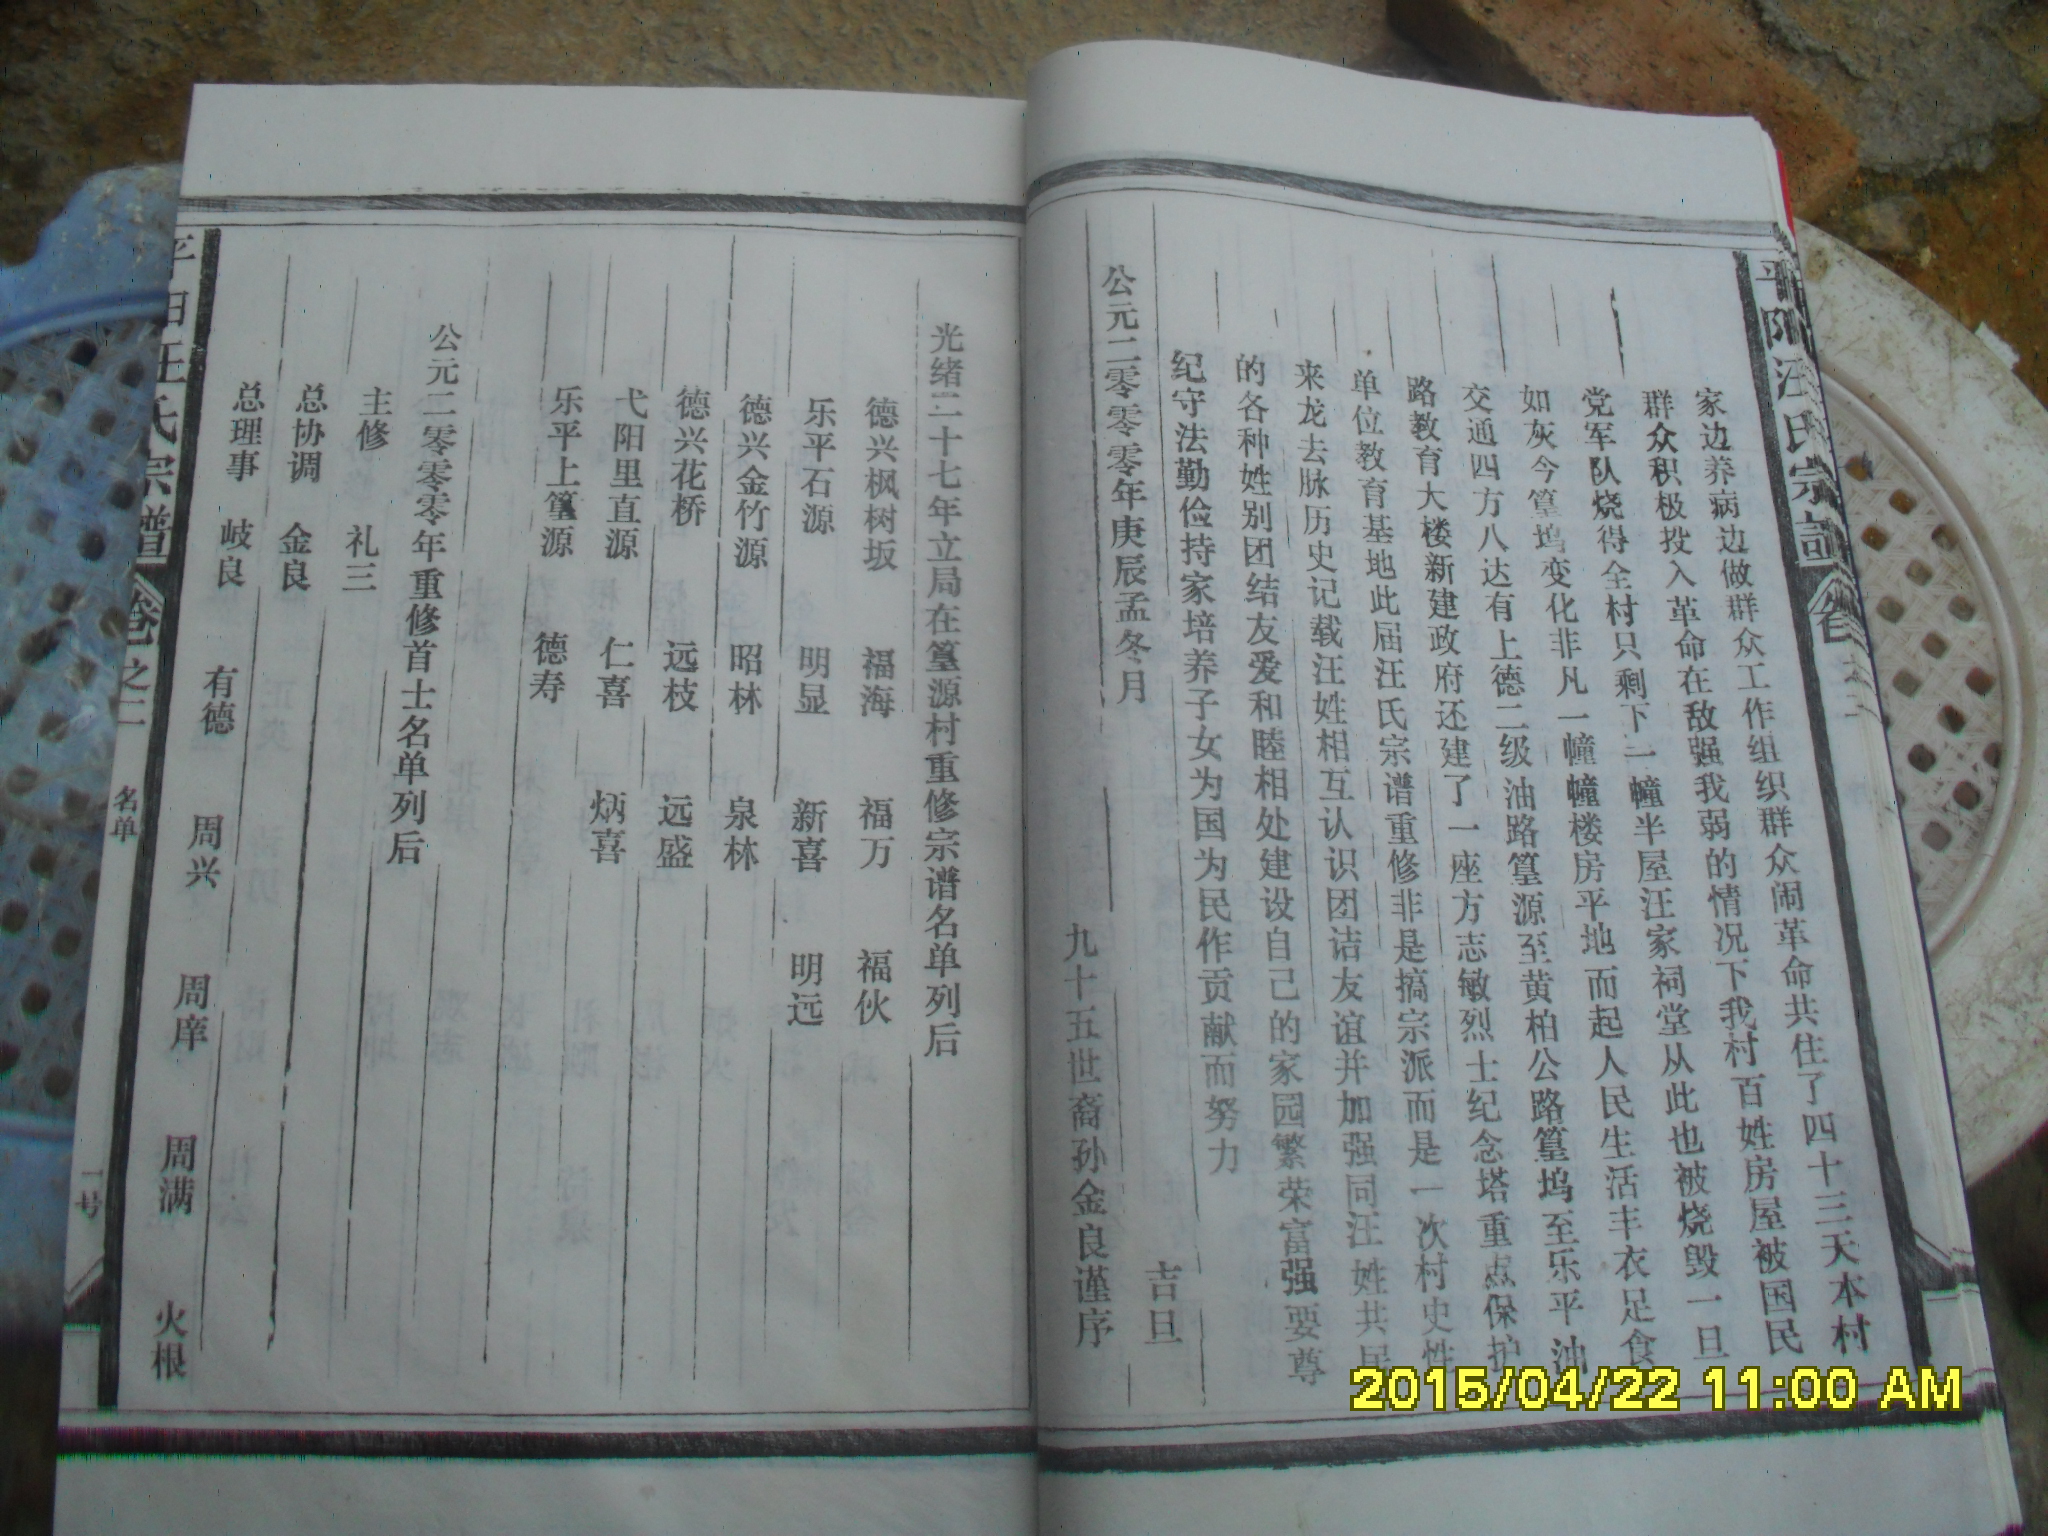 平阳汪氏宗谱 卷之二
家边养病边做群众工作组织群众闹革命共住了四十三天本村
群众积极投入革命在敌强我弱的情况下我村百姓房屋被国民
党军队烧得全村只剩下一幢半屋汪家祠堂从此也被烧毁一旦
如灰今篁坞变化非凡一幢幢楼房平地而起人民生活丰衣足食
交通四方八达有上德二级油路篁源至黄柏公路篁坞至乐平油
路教育大楼新建政府还建了一座方志敏烈士纪念塔重点保护
单位教育基地此届汪氏宗谱重修非是搞宗派而是一次村史性
来龙去脉历史记载汪姓相互认识团诘友谊并加强同汪姓共民
的各种姓别团结友爱和睦相处建设自己的家园繁荣富强要尊
纪守法勤俭持家培养子女为国为民作贡献而努力
吉旦
公元二零零零年庚辰孟冬月
九十五世裔孙金良谨序
光绪二十七年立局在篁源村重修宗谱名单列后
德兴枫树坂 福海 福万 福伙
乐平石源 明显 新喜 明远
德兴金竹源 昭林 泉林
德兴花桥 远枝 远盛
弋阳里直源 仁喜 炳喜
乐平上篁源 德寿
公元二零零零年重修首士名单列后
主修 礼三
总协调 金良
总理事 岐良 有德 周兴 周庠 周满 火根
平阳汪氏宗谱 卷之二 名单 一号
2015/04/22 11:00 AM